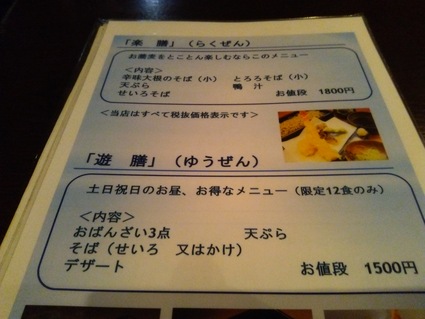 「楽　膳」（らくぜん）
お蕎麦をとことん楽しむならこのメニュー
＜内容＞
辛味大根のそば（小）　とろろそば（小）
天ぷら　鴨　汁
せいろそば　お値段　1800円
＜当店はすべて税抜価格表示です＞
「遊　膳」（ゆうぜん）
土日祝日のお昼、お得なメニュー（限定12食のみ）
＜内容＞
おばんざい3点　天ぷら
そば（せいろ　又はかけ）
デザート　お値段　1500円